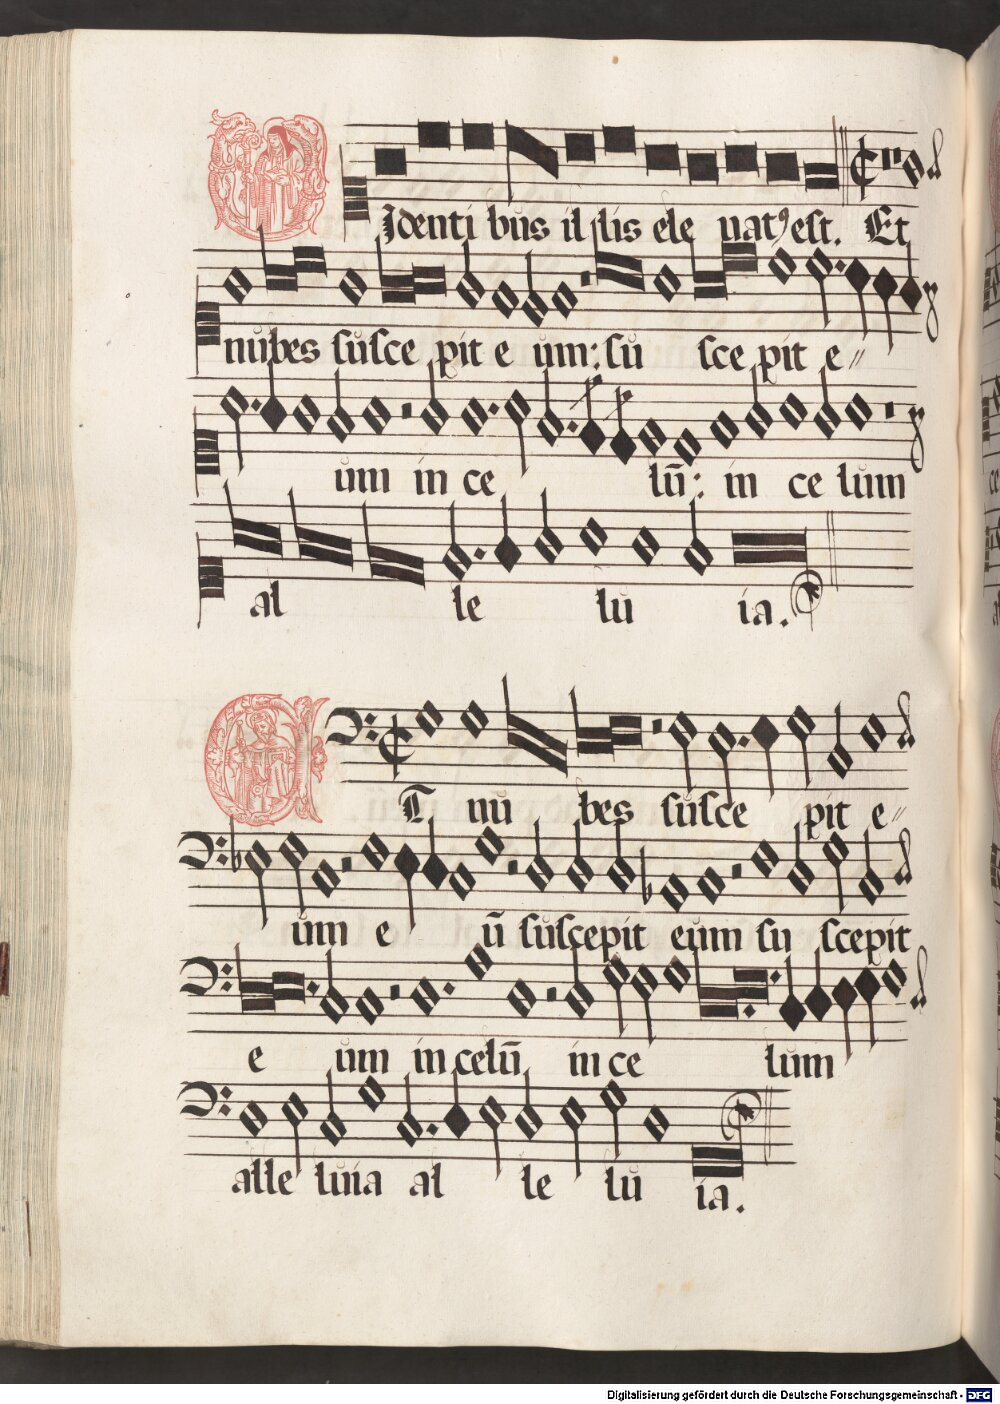 VIdenti bus il lis ele uatꝰ est. Et
nubes susce pit e um: su sce pit e〃
um in ce lū: in ce lum
al le lu ia.
ET nu bes susce pit e〃
um e ū suscepit eum su scepit
e um in celū in ce lum
alle luia al le lu ia.
Digitalisierung gefördert durch die Deutsche Forschungsgemeinschaft - DFG